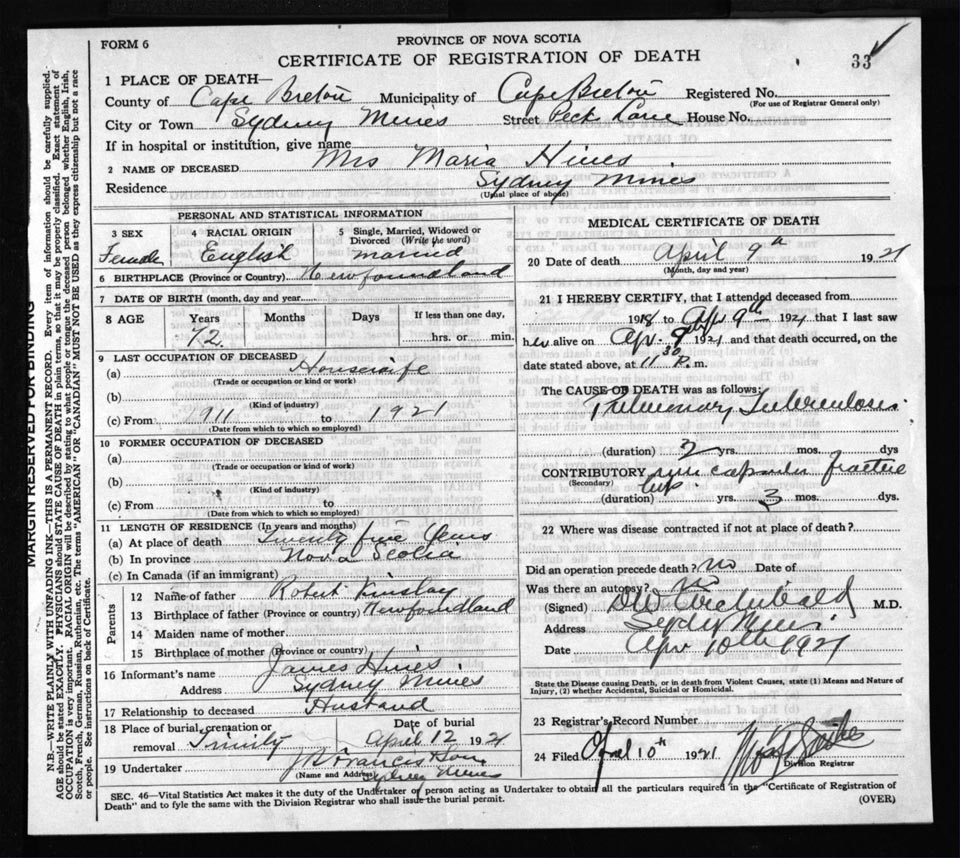 FORM 6
PROVINCE OF NOVA SCOTIA
CERTIFICATE OF REGISTRATION OF DEATH
33
1 PLACE OF DEATH—
County of Cape Breton Municipality of Cape Breton Registered No.
(For use of Registrar General only)
City or Town Sydney Mines Street Peck Lane House No.
If in hospital or institution, give name
2 NAME OF DECEASED Mrs Maria Hines
Residence Sydney Mines
(Usual place of abode)
PERSONAL AND STATISTICAL INFORMATION
3 SEX
Female
4 RACIAL ORIGIN
English
5 Single, Married, Widowed or Divorced (Write the word)
married
6 BIRTHPLACE (Province or Country) Newfoundland
7 DATE OF BIRTH (month, day and year)
8 AGE Years Months Days If less than one day,
72 hrs. or min.
9 LAST OCCUPATION OF DECEASED
(a) Housewife
(Trade or occupation or kind or work)
(b)
(Kind of industry)
(c) From 1911 to 1921
(Date from which to which so employed)
10 FORMER OCCUPATION OF DECEASED
(a)
(Trade or occupation or kind of work)
(b)
(Kind of industry)
(c) From to
(Date from which to which so employed)
11 LENGTH OF RESIDENCE (In years and months)
(a) At place of death Twenty five years
(b) In province Nova Scotia
(c) In Canada (if an immigrant)
Parents
12 Name of father Robert Kinslay
13 Birthplace of father (Province or country) Newfoundland
14 Maiden name of mother
15 Birthplace of mother (Province or country)
16 Informant's name James Hines
Address Sydney Mines
17 Relationship to deceased Husband
18 Place of burial, cremation or removal Trinity
Date of burial
April 12 1921
19 Undertaker J R Francis & Son
(Name and Address) Sydney Mines
MEDICAL CERTIFICATE OF DEATH
20 Date of death April 9th 1921
(Month, day and year)
21 I HEREBY CERTIFY, that I attended deceased from
1918 to Apr 9th 1921 that I last saw
her alive on Apr 9th 1921 and that death occurred, on the
date stated above, at 11 30 P.m.
The CAUSE OF DEATH was as follows:
Pulmonary Tuberculosis
(duration) 2 yrs. mos. dys
CONTRIBUTORY intra capsular fracture
(Secondary) hip
(duration) yrs. 3 mos. dys.
22 Where was disease contracted if not at place of death?
Did an operation precede death? no Date of
Was there an autopsy? no
(Signed) D W Archibald M.D.
Address Sydney Mines
Date Apr 10th 1921
State the Disease causing Death, or in death from Violent Causes, state (1) Means and Nature of Injury, (2) whether Accidental, Suicidal or Homicidal.
23 Registrar's Record Number
24 Filed April 10th 1921
Division Registrar
SEC. 46—Vital Statistics Act makes it the duty of the Undertaker or person acting as Undertaker to obtain all the particulars required in the "Certificate of Registration of
Death" and to fyle the same with the Division Registrar who shall issue the burial permit.
(OVER)
MARGIN RESERVED FOR BINDING
N.B.—WRITE PLAINLY WITH UNFADING INK—THIS IS A PERMANENT RECORD. Every item of information should be carefully supplied.
AGE should be stated EXACTLY. PHYSICIANS should STATE CAUSE OF DEATH in plain terms, so that it may be properly classified. Exact statement of
OCCUPATION is very important. RACIAL ORIGIN will be described by stating to what people or tongue the deceased person belonged whether English, Irish,
Scotch, French, German, Russian, Ruthenian, etc. The terms "AMERICAN" OR "CANADIAN" MUST NOT BE USED as they express citizenship but not a race
or people. See instructions on back of Certificate.